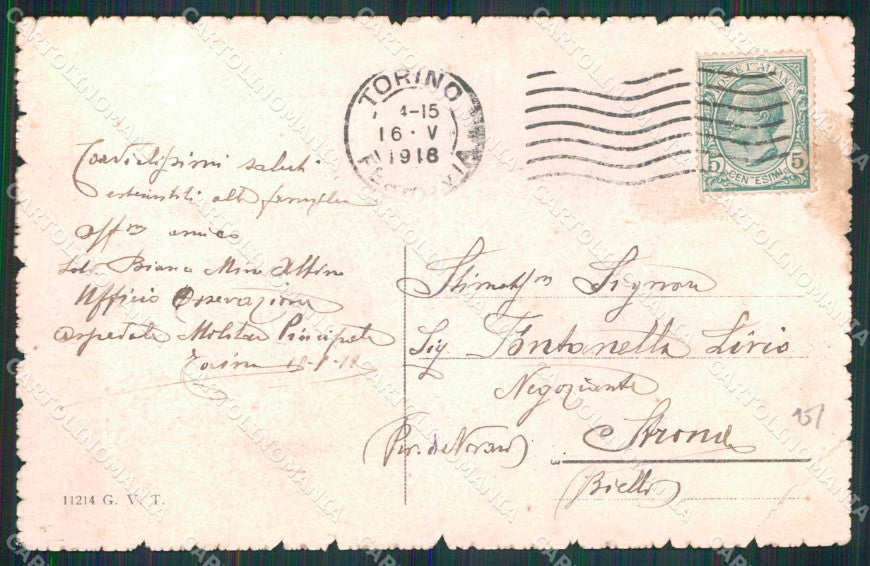 TORINO
4-15
16·V
1918
FERROVIA
POSTE ITALIANE
5 CENTESIMI 5
Cordialissimi saluti
estensibili alla famiglia
aff.mo amico
Sold. Bianco Albino
Ufficio Osservazione
Ospedale Militare Principale
Torino
Signor
Sig Fontanella Livio
Negoziante
Strona
(Biella)
151
11214 G. V. T.
CARTOLINOMANIA